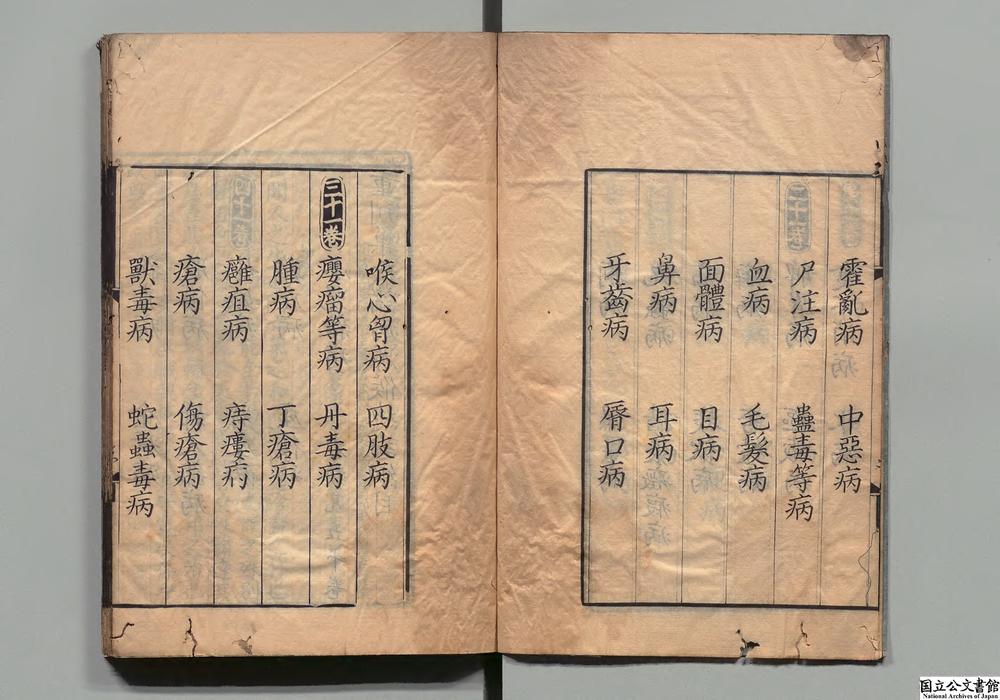 霍亂病 中惡病
尸注病 蠱毒等病
血病 毛髮病
面體病 目病
鼻病 耳病
牙齒病 脣口病
喉心胷病 四肢病
三十一卷 癭瘤等病 丹毒病
腫病 丁瘡病
癰疽病 痔瘻病
瘡病 傷瘡病
獸毒病 蛇蟲毒病
国立公文書館
National Archives of Japan